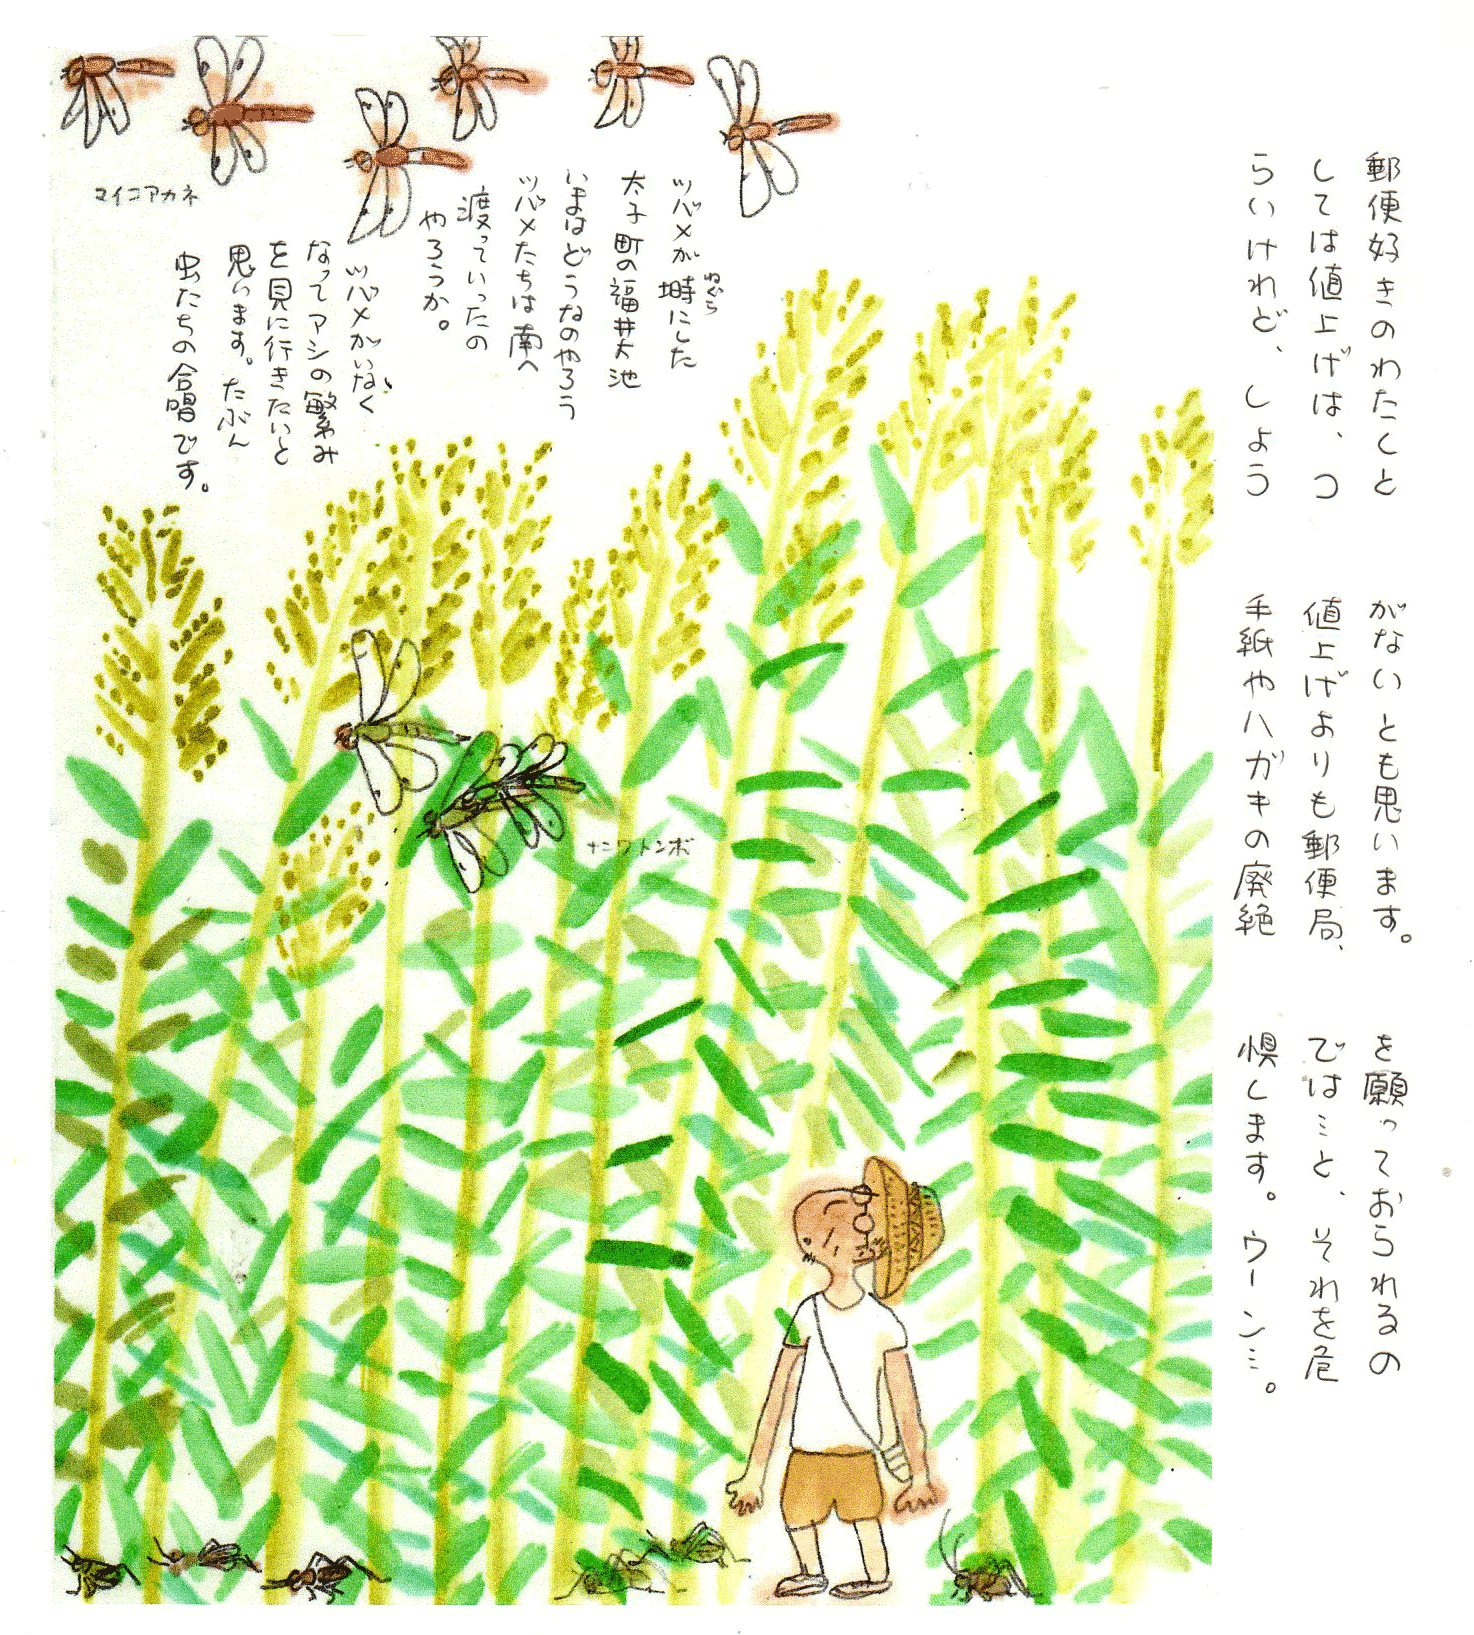 郵便好きのわたくしと
しては値上げは、つ
らいけれど、しよう
がないとも思います。
値上げよりも郵便局、
手紙やハガキの廃絶
を願っておられるの
では…と、それを危
惧します。ウーン…。
ツバメが塒にした
ねぐら
太子町の福井大池
いまはどうなのやろう
ツバメたちは南へ
渡っていったの
やろうか。
ツバメがいなく
なってアシの繁み
を見に行きたいと
思います。たぶん
虫たちの合唱です。
マイコアカネ
ナニワトンボ